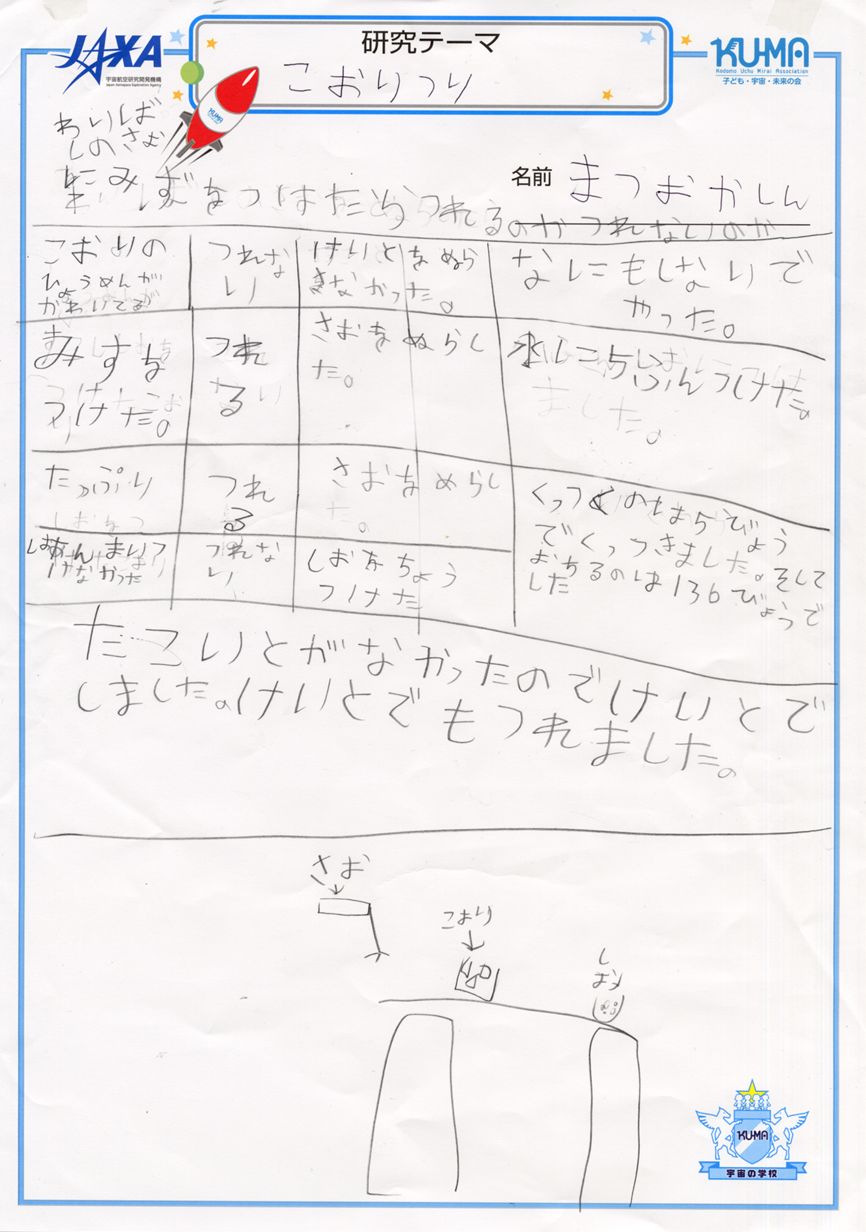 JAXA
宇宙航空研究開発機構
Japan Aerospace Exploration Agency
研究テーマ
こおりつり
KU-MA
Kodomo Uchu Mirai Association
子ども・宇宙・未来の会
KU-MA
わりば
しのさお
にみずをつけたらつれるのかつれないのか
名前 まつおかしん
こおりの
ひょうめんが
かわいてるが
つれな
い
けいとをぬら
さなかった。
なにもしないで
やった。
みずを
つけた。
つれ
る
さおをぬらし
た。
たっぷり
つれ
る
さおをぬらし
た。
くっつくのは
でくっつきました。そして
おちるのは136びょうで
した
つれな
い
しおをちょう
つけた
たこいとがなかったのでけいとで
しました。けいとでもつれました。
さお
こおり
しお
KU-MA
宇宙の学校